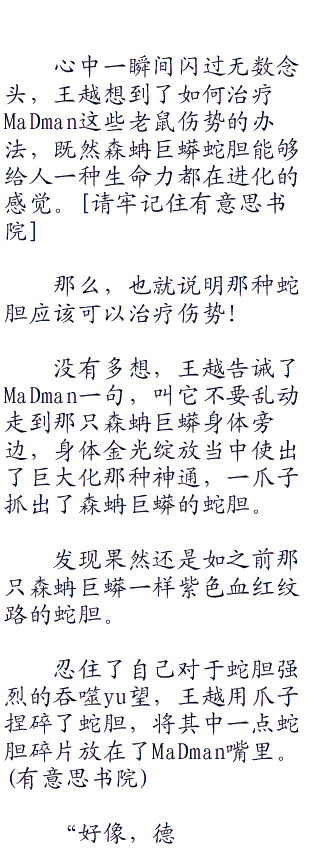 心中一瞬间闪过无数念
头，王越想到了如何治疗
MaDman这些老鼠伤势的办
法，既然森蚺巨蟒蛇胆能够
给人一种生命力都在进化的
感觉。[请牢记住有意思书
院]
那么，也就说明那种蛇
胆应该可以治疗伤势！
没有多想，王越告诫了
MaDman一句，叫它不要乱动
走到那只森蚺巨蟒身体旁
边，身体金光绽放当中使出
了巨大化那种神通，一爪子
抓出了森蚺巨蟒的蛇胆。
发现果然还是如之前那
只森蚺巨蟒一样紫色血红纹
路的蛇胆。
忍住了自己对于蛇胆强
烈的吞噬yu望，王越用爪子
捏碎了蛇胆，将其中一点蛇
胆碎片放在了MaDman嘴里。
(有意思书院)
“好像，德